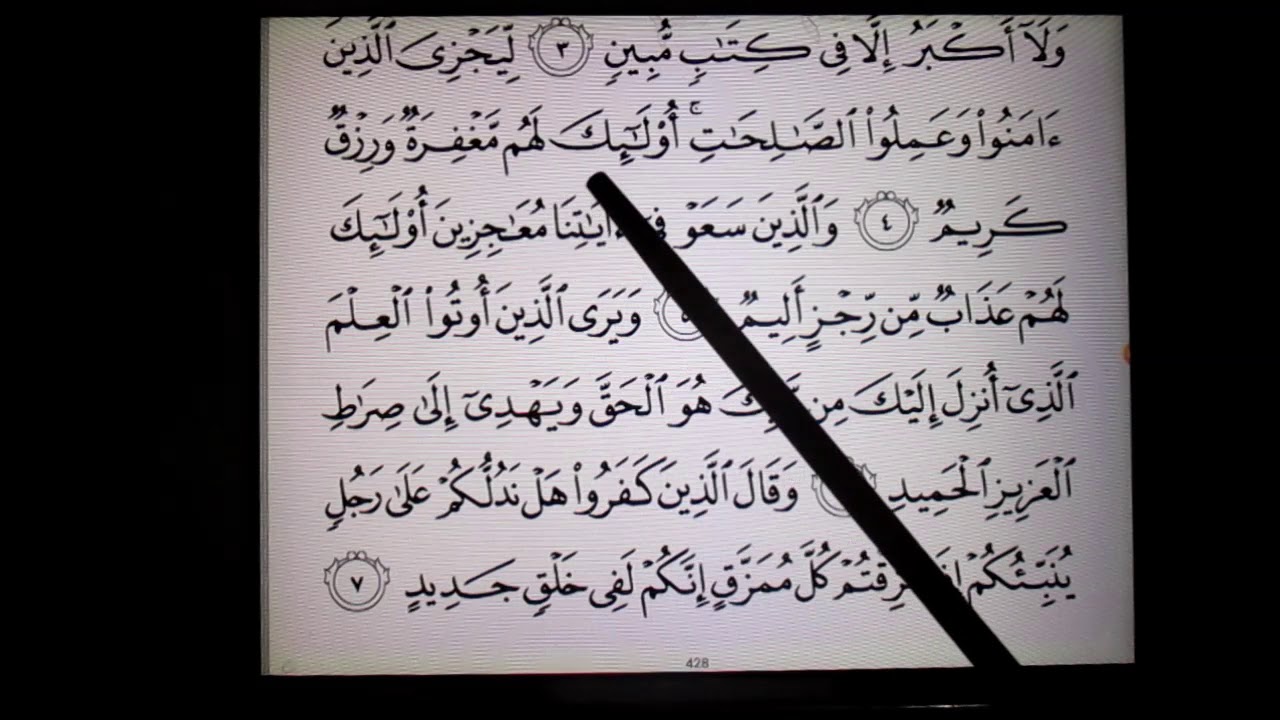 وَلَآ أَكْبَرُ إِلَّا فِى كِتَٰبٍ مُّبِينٍ ٣ لِّيَجْزِىَ ٱلَّذِينَ
ءَامَنُوا۟ وَعَمِلُوا۟ ٱلصَّٰلِحَٰتِ ۚ أُو۟لَٰٓئِكَ لَهُم مَّغْفِرَةٌ وَرِزْقٌ
كَرِيمٌ ٤ وَٱلَّذِينَ سَعَوْ ءَايَٰتِنَا مُعَٰجِزِينَ أُو۟لَٰٓئِكَ
لَهُمْ عَذَابٌ مِّن رِّجْزٍ أَلِيمٌ ٥ وَيَرَى ٱلَّذِينَ أُوتُوا۟ ٱلْعِلْمَ
ٱلَّذِىٓ أُنزِلَ إِلَيْكَ مِن هُوَ ٱلْحَقَّ وَيَهْدِىٓ إِلَىٰ صِرَٰطِ
ٱلْعَزِيزِ ٱلْحَمِيدِ وَقَالَ ٱلَّذِينَ كَفَرُوا۟ هَلْ نَدُلُّكُمْ عَلَىٰ رَجُلٍ
يُنَبِّئُكُمْ كُلَّ مُمَزَّقٍ إِنَّكُمْ لَفِى خَلْقٍ جَدِيدٍ ٧
428